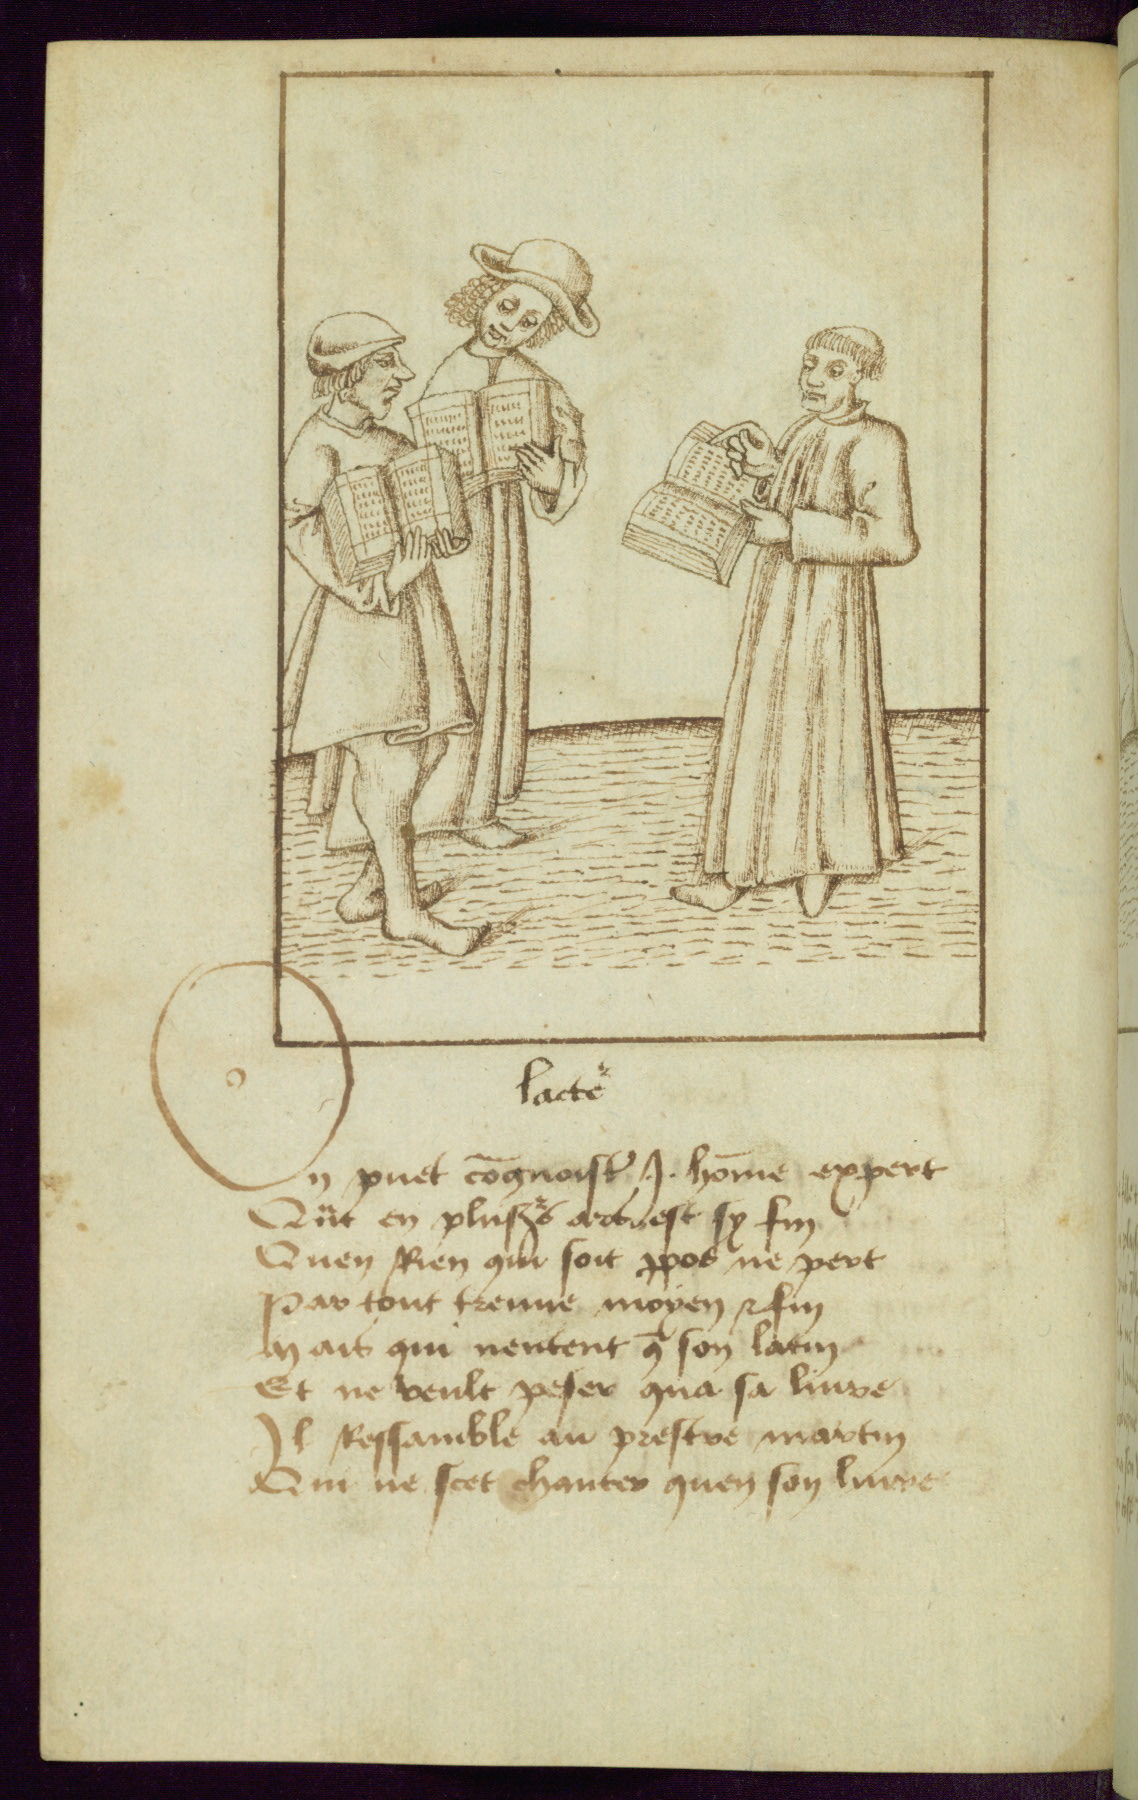 lacteʳ
On puet cōgnoistʳ .I. hōme expert
Qūt en plusʳˢ ars est sy fin
Quen Rien qui soit ꝓpos ne pert
Par tout treuue moyen ⁊ fin
Mais qui nentent q̄ son latin
Et ne veult peser qua sa liure
Il Ressamble au prestre martin
Qui ne scet chanter quen son liure